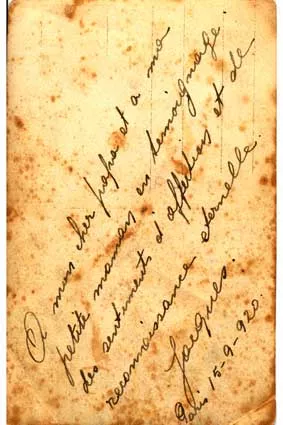 A mon cher papa et a ma
petite maman en temoignage
des sentiments d'affections et de
reconnaissance eternelle.
Jacques.
Paris 15-9-920.